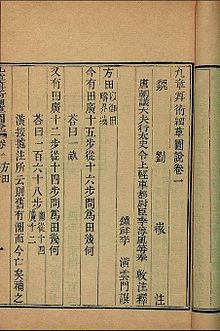 九章算術細草圖說卷一
魏 劉 徽 注
唐朝議大夫行太史令上輕車都尉臣李淳風等奉 敕注釋
鍾祥李 潢雲門譔
方田 以御田疇界域
今有田廣十五步從十六步問為田幾何
荅曰一畝
又有田廣十二步從十四步問為田幾何
荅曰一百六十八步 圖從十四廣十二
潢按據注所云則舊有圖而今亡矣補之
方田